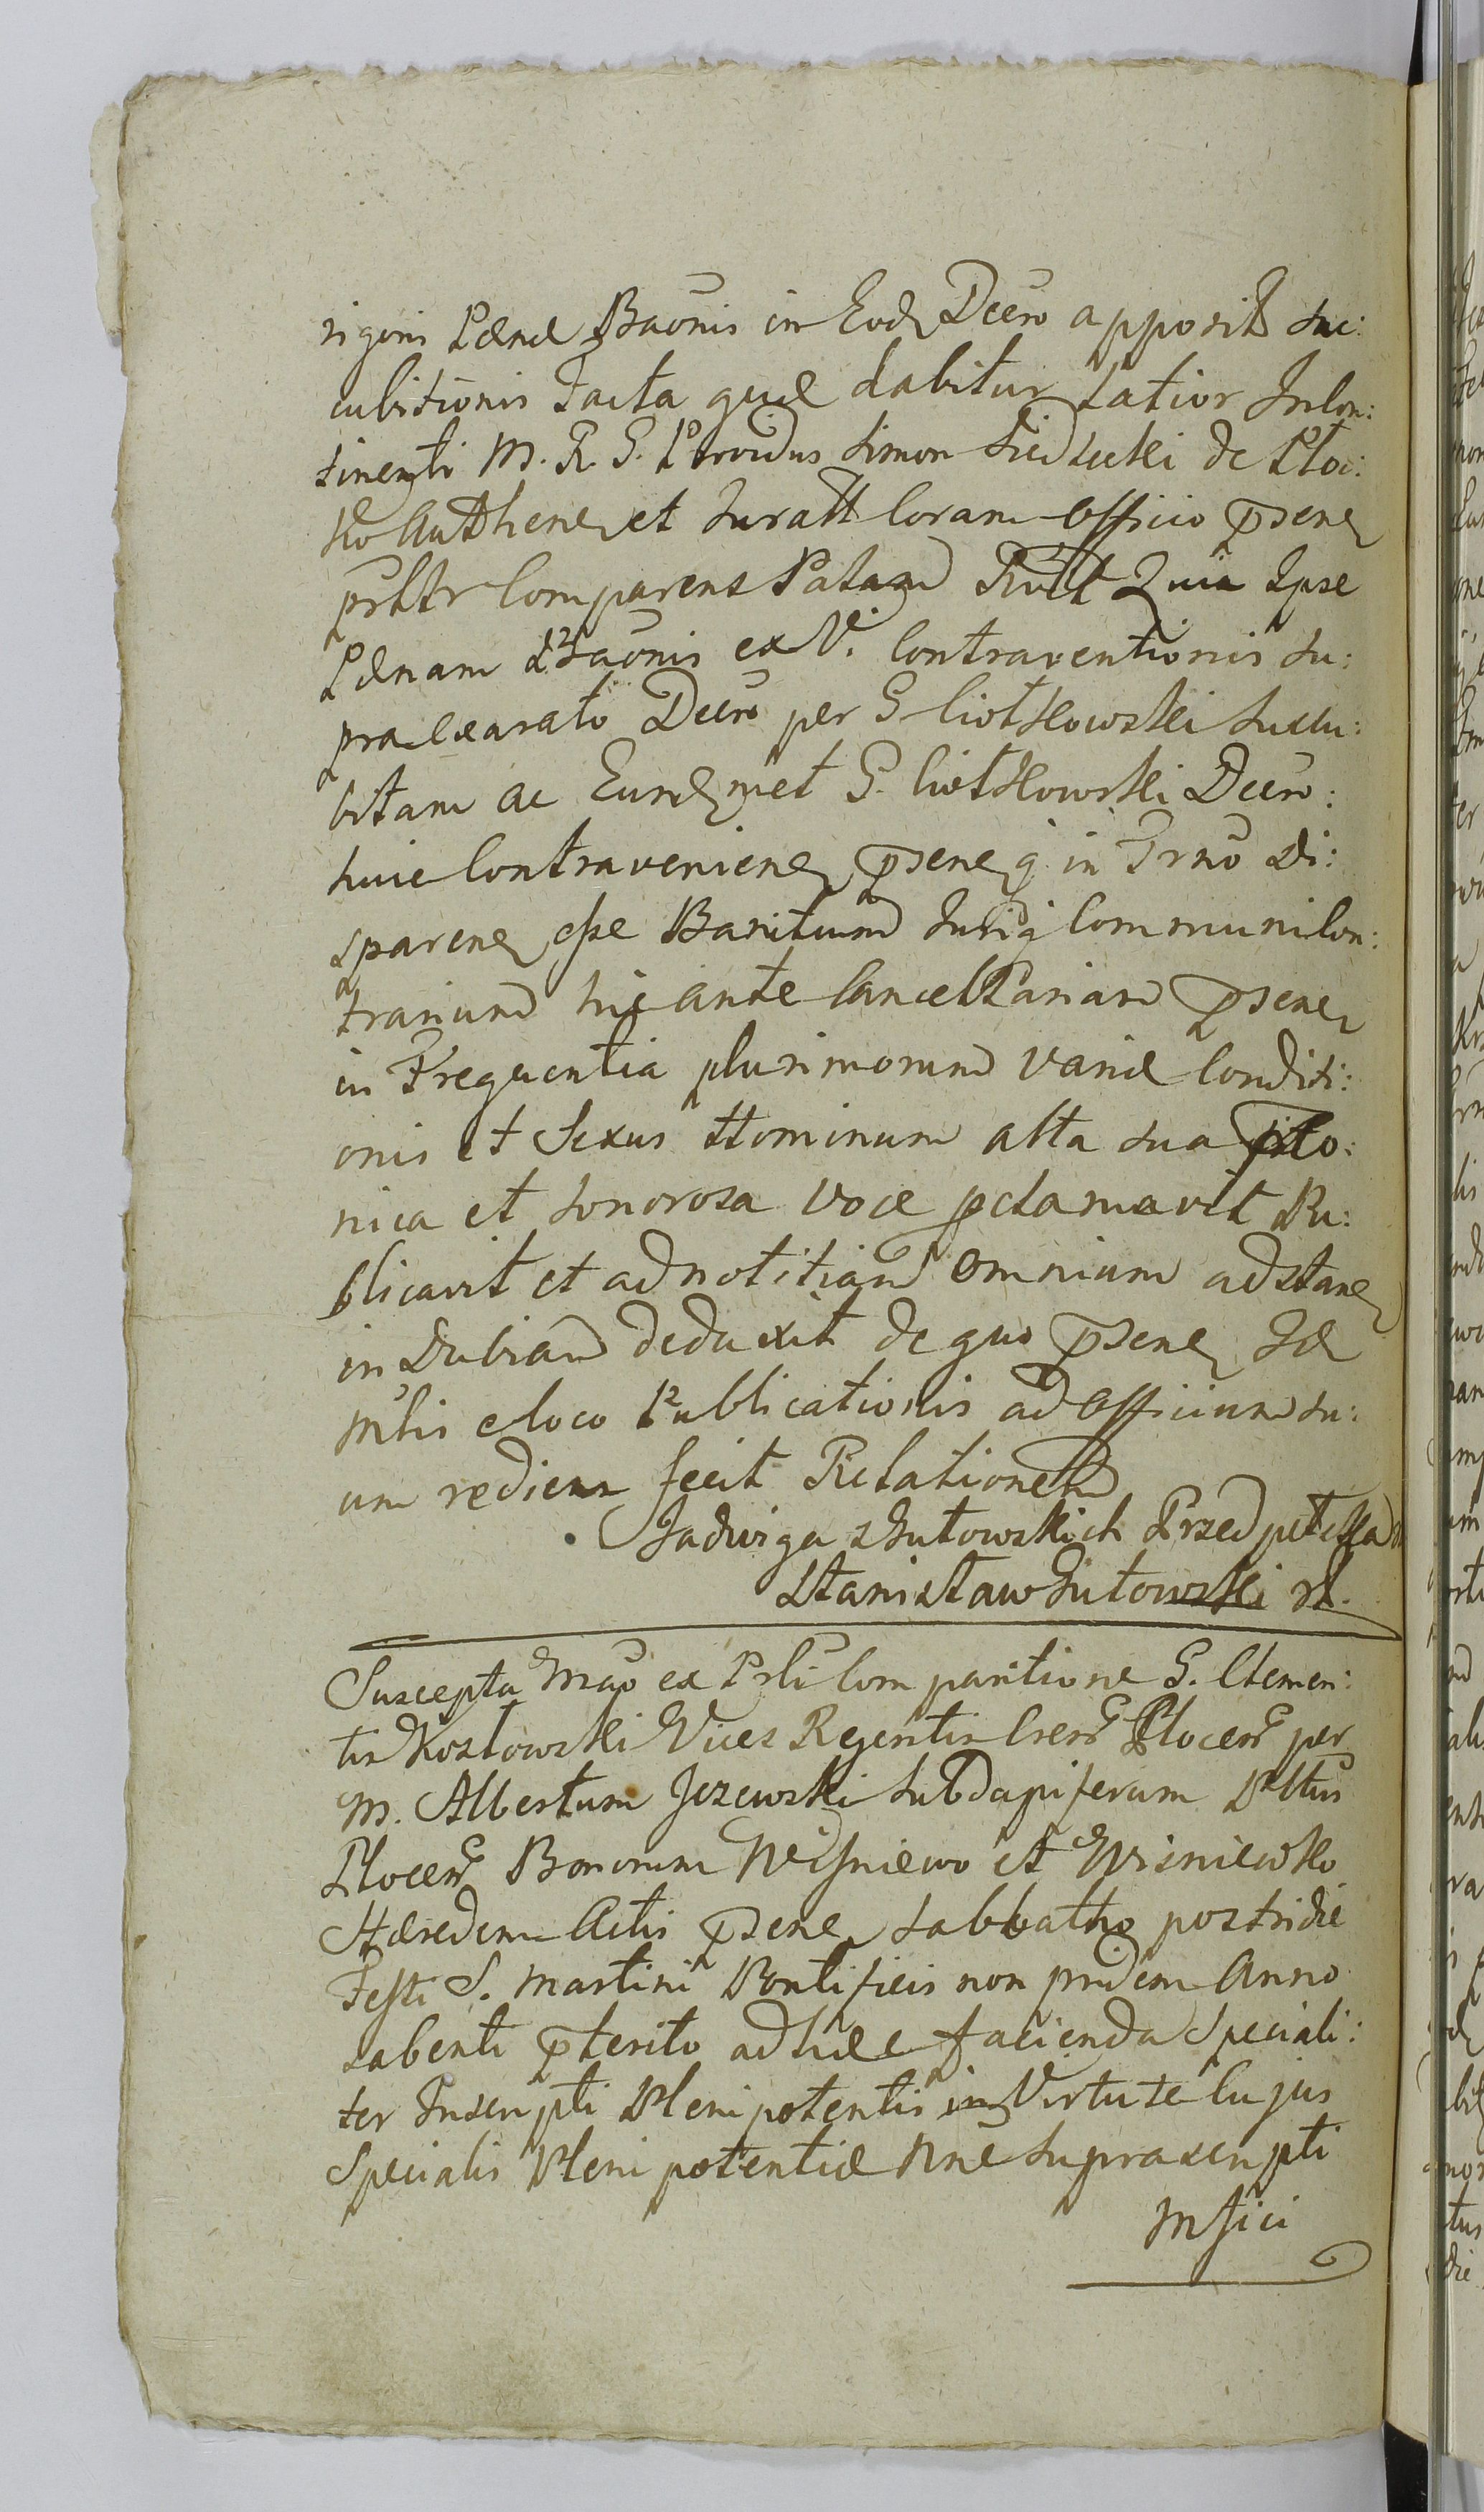 rigoris Pænæ Baōnis in Eod Decro apposit Suc:
cubitionis Facta quæ dabitur Latior Incon:
tinenti M. R. G. Providus Simon Siedlecki de Ploc:
ko Authen et Juratt Coram Officio psen
prlttr Comparens Palam Rvlt Quia Ipse
Pænam Baōnis ex V. Contraventionis su:
pra læarato Decro per G Ciotkowski Succu:
bitam ac Eundmet G. Ciotkowski Decro:
huic Contravenien psen q in Trno Di:
sparen esse Banitum Juriq Communi Con:
trarium hic ante Cancellariam psen
in Frequentia plurimorum variæ Conditi:
onis et Sexus Hominum alta sua
nica et sonorosa voce pclamavit Pu:
blicavit et ad notitiam omnium adstan
in Dubiam deduxit de quo psen Id
Mlis e loco Publicationis ad Officium su:
um rediens fecit Relationem
Jadwiga z Gutowskich Przedpełska
Stanisław Gutowski
Suscepta Mao ex Prli Comparitione G. Clemen:
tis Kozłowski Vices Regentis Cren Plocen per
M. Albertum Jezewski Subdapiferum Plttus
Plocen Bonorum Wiśniewo et Wisniewko
Hæredem Actis psen Sabbatho postridie
Festi S. Martini Pontificis non pridem Anno
labenti pterito ad hæc facienda Speciali:
ter Inscripti Plenipotentis in Virtute Cujus
Specialis Plenipotentiæ Nne Suprascripti
Mfici